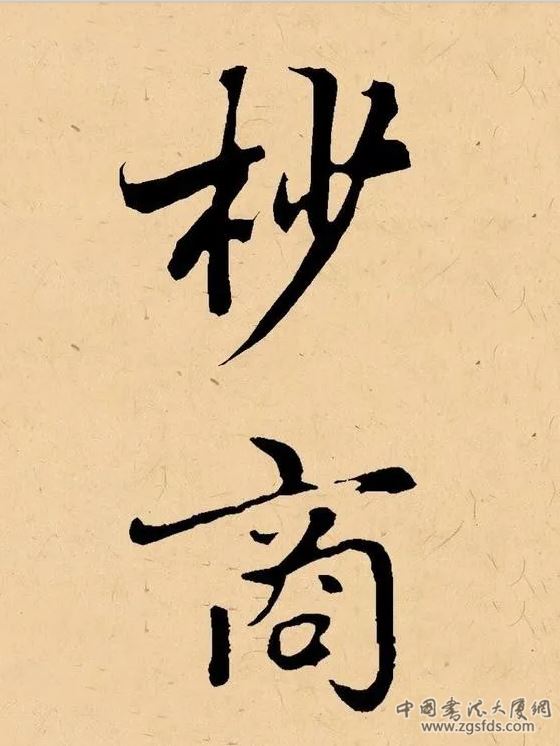 杪
商
中国书法大厦网
www.zgsfds.com